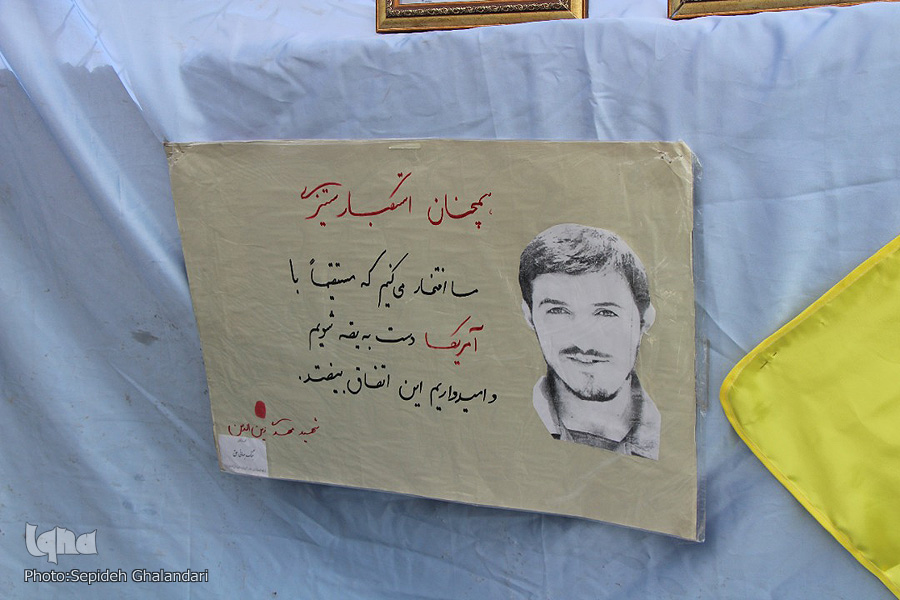 همچنان استکبارستیزی
ما افتخار می‌کنیم که مستقیماً با
آمریکا دست به یقه شویم
و امیدواریم این اتفاق بیفتد.
شهید مهدی زین‌الدین
iqna
Photo:Sepideh Ghalandari